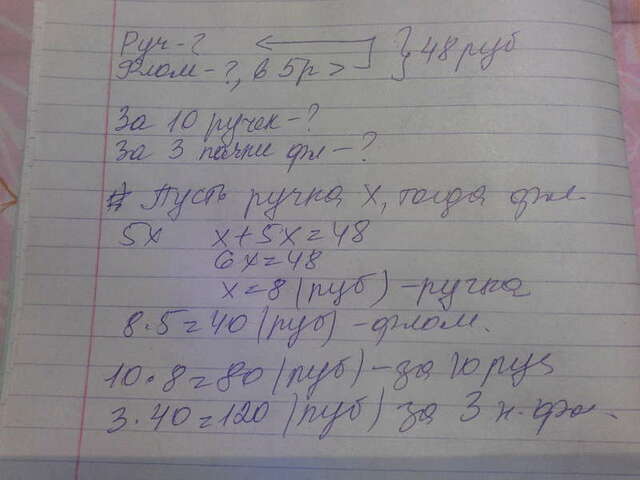 Руч-?
Флом-?, в 5р > } 48 руб
За 10 ручек-?
За 3 пачки фл-?
Пусть ручка х, тогда фл.
5х х+5х=48
6х=48
х=8 (руб) -ручка
8·5=40 (руб) -флом.
10·8=80 (руб) -за 10 руч
3·40=120 (руб) за 3 п. фл.